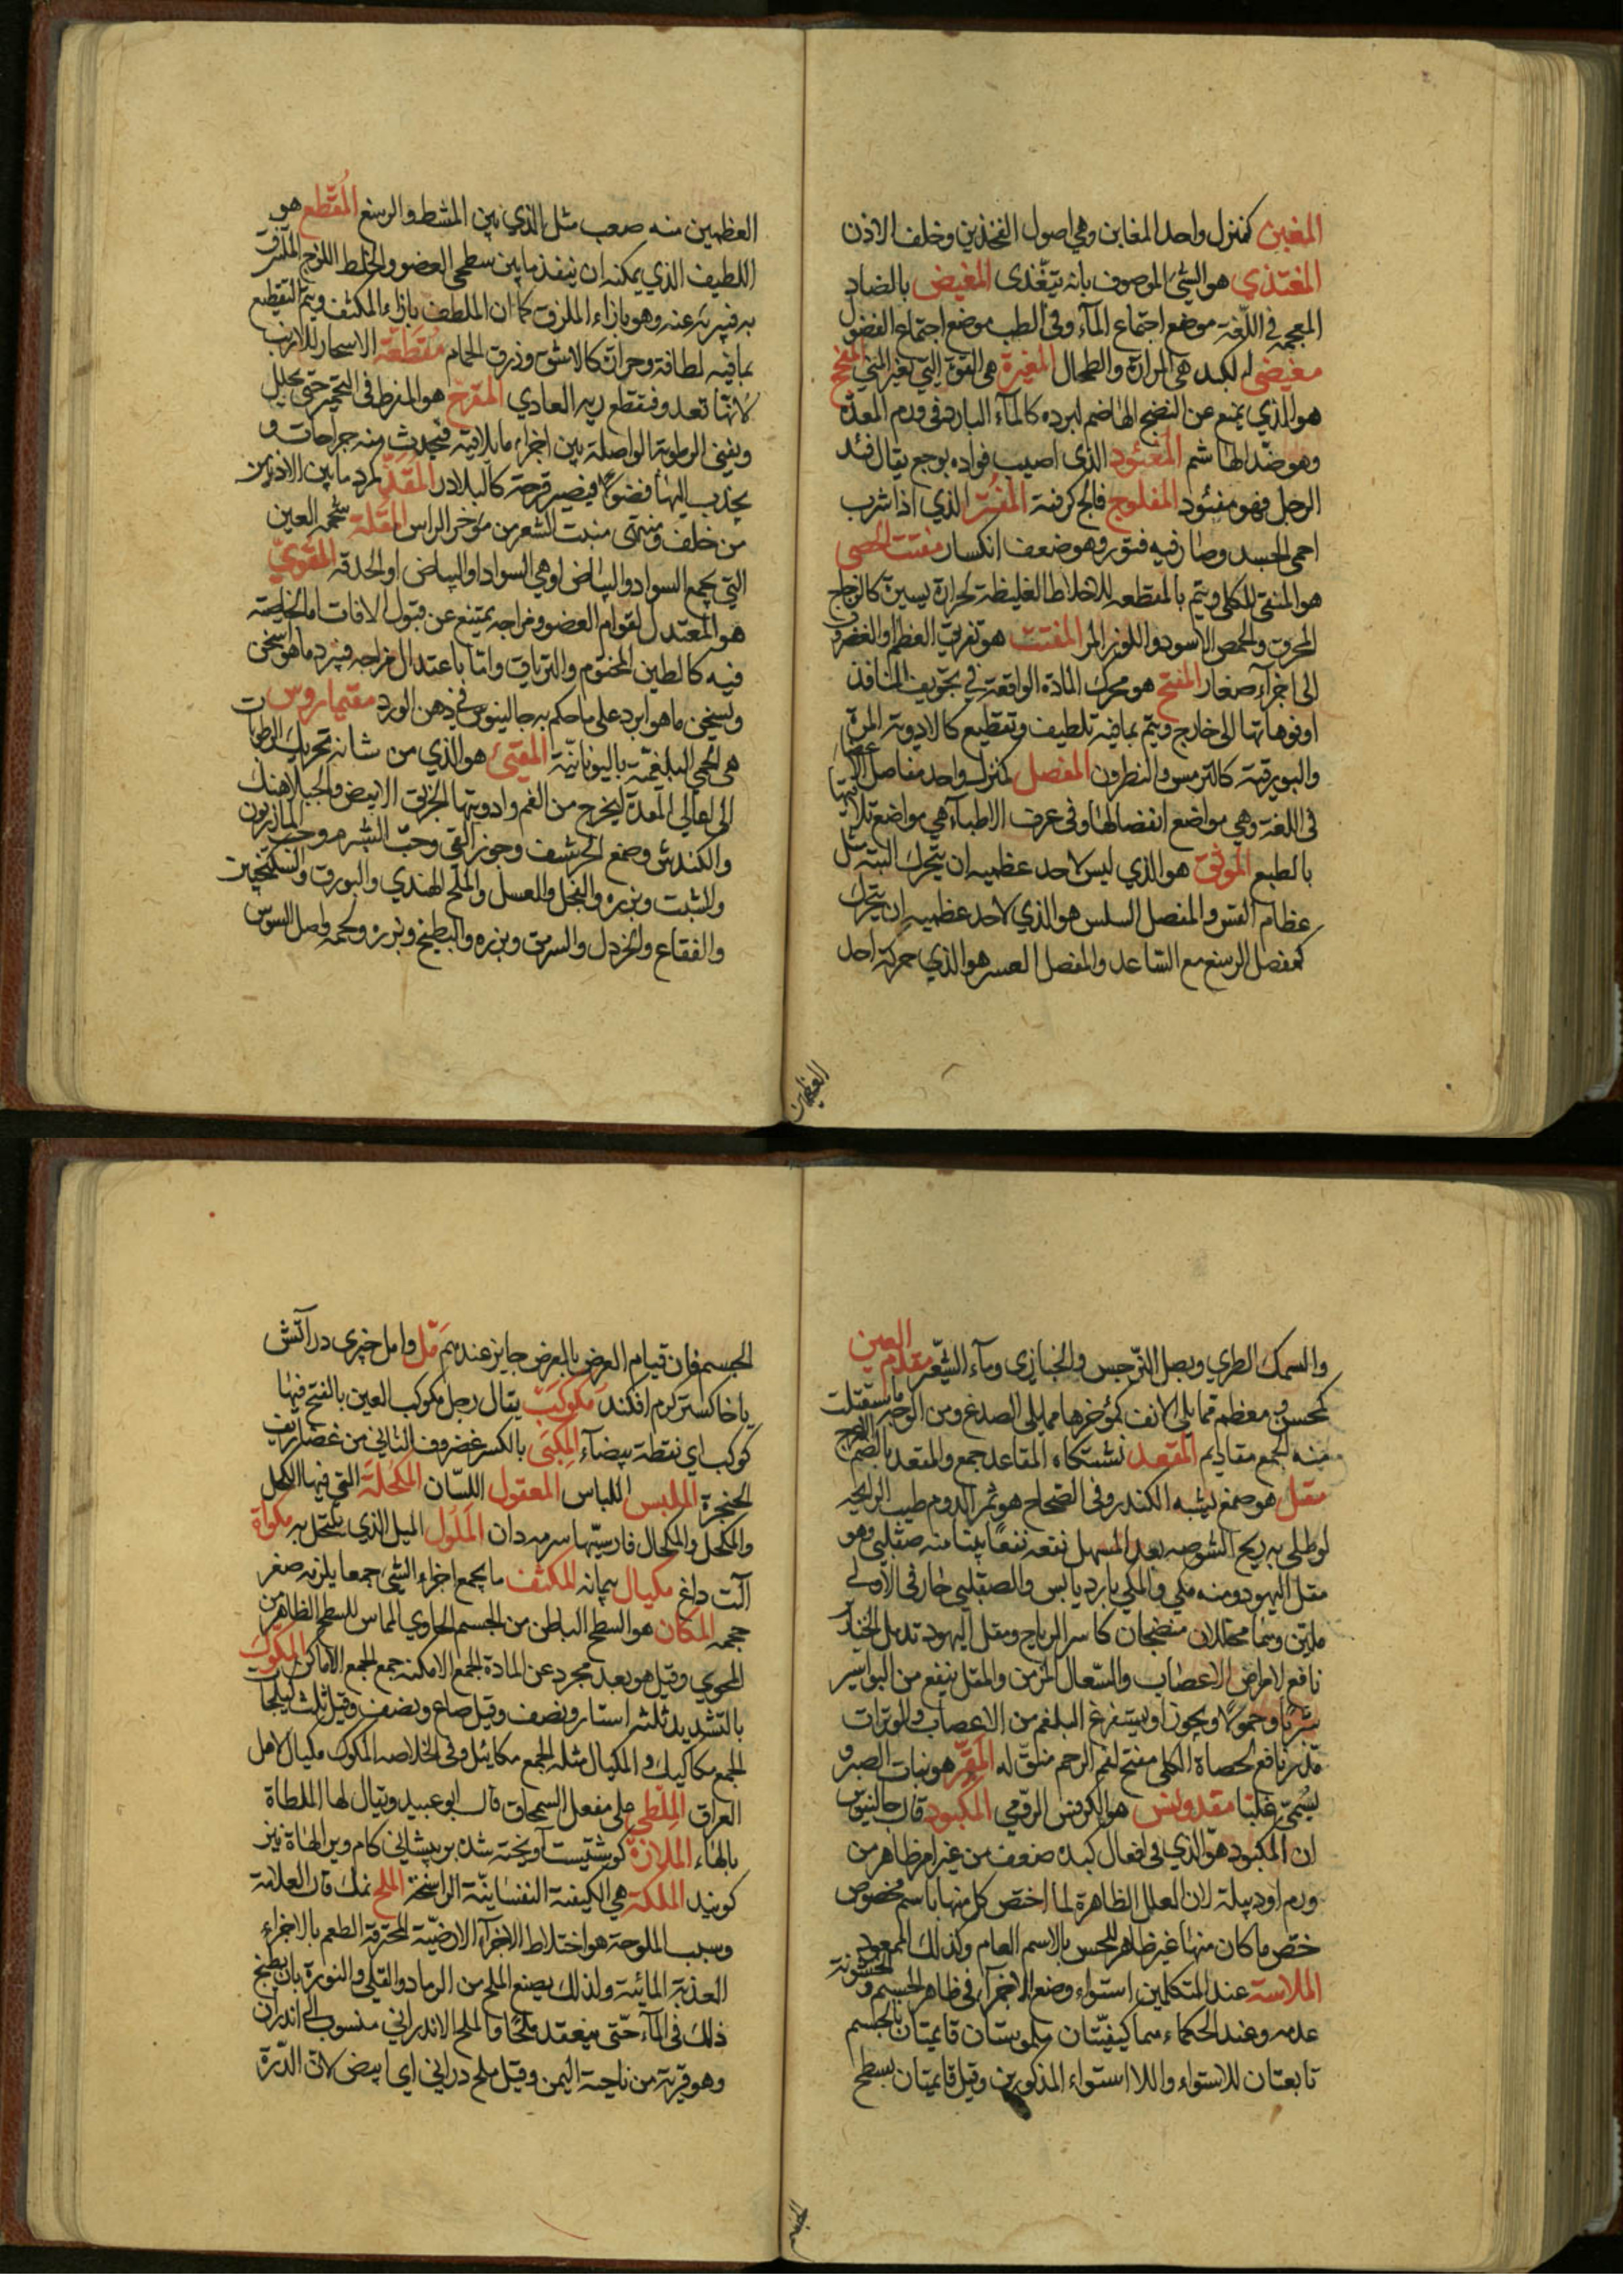 المغبن كمنزل واحد المغابن وهي اصول الفخذين وخلف الاذن
المغتذي هو الشيئ الموصوف بانه يتغذى المغيض بالضاد
المعجمة في اللغة موضع اجتماع المآء وفي الطب موضع اجتماع الفضول
مغيضى الكبد هي المرارة والطحال المغيرة هي القوة التي تغير المني المفجج
هو الذي يمنع عن النضج الهاضم لبرده كالمآء البارد في ورم المعدة
وهو ضد الهاشم المفئود الذي اصيب فواده بوجع يقال فئد
الرجل فهو مفئود المفلوج فالج كرفتة المفتر الذي اذا شرب
احمى الجسد وصار فيه فتور وهو ضعف انكسار مفتت الحصى
هو المنقى للكلى ويتم بالمقطعه للاخلاط الغليظة لحرارة يسيرة كالزجاج
المحرق والحمص الاسود واللوز المر المفتت هو تفريق العظم او الغضروف
الى اجزآء صغار المفتح هو محرك المادة الواقعة في تجويف المنافذ
او فوهاتها الى خارج ويتم بما فيه تلطيف وتقطيع كالادوية المرة
والبورقية كالترمس والنطرون المفصل كمنزل واحد مفاصل الاعضا
في اللغة وهي مواضع انفصالها وفي عرف الاطبآء هي مواضع تلاقيها
بالطبع الموثق هو الذي ليس لاحد عظميه ان يتحرك البتة مثل
عظام القس والمفصل السلس هو الذي لاحد عظميه ان يتحرك
كمفصل الرسغ مع الساعد والمفصل العسر هو الذي حركة احد
العظمين
العظمين منه صعب مثل الذي بين المشط والرسغ المقطع هو
اللطيف الذي يمكنه ان ينفذ ما بين سطحى العضو والخلط اللزج الملتزق
به فيبريه عنه وهو بازاء الملزق كما ان الملطف بازاء المكثف ويتم التقطيع
بما فيه لطافة وحرارة كالاشق وذرق الحمام مقطعة الاسحار للارنب
لانها تعدو فتقطع ربر العادي المقرح هو المفرط في التجمير حتى يحلل
ويفنى الرطوبة الواصلة بين اجزاء ما يلاقيه فيحدث منه جراحات و
يجذب اليها فضولا فيصير قرحة كالبلادر المقذ كمرد ما بين الاذنين من
من خلف ومنتهى منبت الشعر من مؤخر الراس المقلة شحمه العين
التي يجمع السواد والبياض او هي السواد او البياض او الحدقة المقوي
هو المعتدل لقوام العضو ومزاجه يمتنع عن قبول الافات اما لخاصية
فيه كالطين المختوم والترياق واما باعتدال مزاجه فيبرد ما هو اسخن
ويسخن ما هو ابرد على ما حكم به جالينوس في دهن الورد مقتيماروس
هي الحمى البلغمية باليونانية المقيئ هو الذي من شانه تحريك الرطوبات
الى اعالي المعدة ليخرج من الفم وادويتها الخربق الابيض والجبلاهنك
والكندش وصمغ الحرشف وجوز القي وحب الشبرم وحب المازريون
والشبت وبزره والبخل والعسل والملح الهندي والبورق والسكنجبين
والفقاع والخردل والسرمق وبزره والبطيخ وبزره ولحمه واصل السوس
والسمك الطري وبصل النرجس والخبازي ومآء الشعير مقدم العين
كمحسن ومعظم مما يلي الانف كمؤخرها مما يلي الصدغ ومن الوجه ما استقبلت
منه الجمع مقاديم المقعد نشستكاه المقاعد جمع والمقعد بالضم الاعرج
مقل هو صمغ يشبه الكندر وفي الصحاح هو ثمر الدوم طيب الرايحة
لو طلى به ريح الشوصه بعد المسهل نفعه نفعا بيتا منه صقلبي وهو
مقل اليهود ومنه مكي والمكي بارد يابس والصقلبي حار في الاولى
ملين وهما محللان منضجان كاسر الرياح ومقل اليهود تدمل الخنازير
نافع لامراض الاعصاب والسعال المزمن والمقل ينفع من البواسير
شربا وحمولا وبخورا ويستفرغ البلغم من الاعصاب والوترات
مدر نافع لحصاة الكلى مفتح لفم الرحم منق له المقر هو نبات الصبر و
يسمى غلتبا مقدونس هو الكرفس الرومي المكبود قال جالينوس
ان المكبود هو الذي في افعال كبده ضعف من غير امر ظاهر من
ورم او دبيلة لان العلل الظاهرة لما اختص كل منها باسم مخصوص
خص ما كان منها غير ظاهر للحس بالاسم العام وكذلك الممعود
الملاسة عند المتكلمين استواء وضع الاجزآء في ظاهر الجسم والخشونة
عدمه وعند الحكماء هما كيفيتان ملموستان قايمتان بالجسم
تابعتان للاستواء واللا استواء المذكورين وقيل قايمتان بسطح
الجسم فان قيام العرض بالعرض جايز عندهم مل وامل خبزى در اتش
يا خاكستر كرم افكند مكوكب يقال رجل مكوكب العين بالفتح فيها
كوكب اي نقطة بيضآء المكبى بالكسر غضروف الثاني من غضاريف
الحنجرة الملبس اللباس المعقول اللسان المكحلة التي فيها الكحل
والمكحل والمكحال فارسيها سرمه دان الملول الميل الذي يكتحل به مكواة
آلت داغ مكيال پیمانه المكثف ما يجمع اجزاء الشئ جمعا يلزمه صغر
حجمه المكان هو السطح الباطن من الجسم الحاوي المماس للسطح الظاهر من
المحوي وقيل هو بعد مجرد عن المادة الجمع الامكنة جمع الجمع الاماكن المكوك
بالتشديد ثلثة استار ونصف وقيل صاع ونصف وقيل ثلث كيلجات
الجمع مكاكيك و المكيال مثله الجمع مكائيل وفي الخلاصه المكوك مكيال لاهل
العراق الملطى على مفعل السمحاق قال ابو عبيد ويقال لها الملطاة
بالهاء الملازة كوشتيست آويخته شده بر پیشانی كام ويرا لهاة نيز
كويند الملكة هي الكيفية النفسانية الراسخة الملح نمك قال العلامة
وسبب الملوحة هو اختلاط الاجزآء الارضية المحترقة الطعم بالاجزاء
العذبة المائية ولذلك يصنع الملح من الرماد والقلى والنورة بان يطبخ
ذلك في المآء حتى ينعقد ملحا والملح الاندراني منسوب الى اندران
وهو قرية من ناحية اليمن وقيل ملح دراني اي ابيض لان الدرة